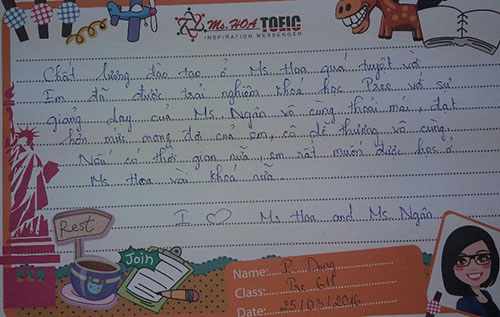 Ms.HOA TOEIC
INSPIRATION MESSENGER
Chất lượng đào tạo ở Ms Hoa quá tuyệt vời
Em đã được trải nghiệm khoá học Pree với sự
giảng dạy của Ms Ngân vô cùng thoải mái, đạt
hơn mức mong đợi của em, cô dễ thương vô cùng.
Nếu có thời gian nữa, em rất muốn được học ở
Ms Hoa vài khoá nữa.
I ♡ Ms Hoa and Ms. Ngân
Rest
Join
Name: P. Dung
Class: Pre
Date: 25/03/2016